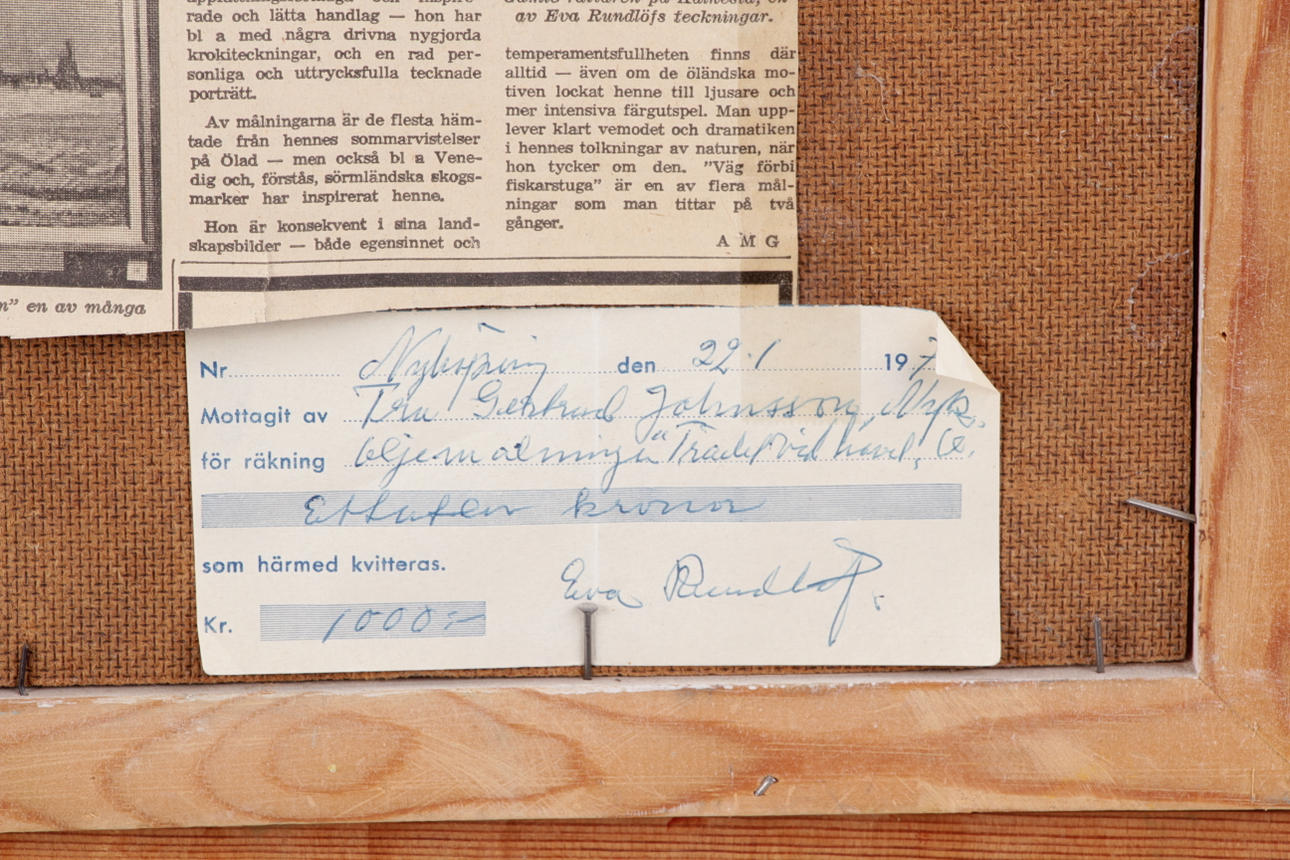 rade och lätta handlag — hon har
bl a med några drivna nygjorda
krokiteckningar, och en rad per-
sonliga och uttrycksfulla tecknade
porträtt.
Av målningarna är de flesta häm-
tade från hennes sommarvistelser
på Ölad — men också bl a Vene-
dig och, förstås, sörmländska skogs-
marker har inspirerat henne.
Hon är konsekvent i sina land-
skapsbilder — både egensinnet och
av Eva Rundlöfs teckningar.
temperamentsfullheten finns där
alltid — även om de öländska mo-
tiven lockat henne till ljusare och
mer intensiva färgutspel. Man upp-
lever klart vemodet och dramatiken
i hennes tolkningar av naturen, när
hon tycker om den. "Väg förbi
fiskarstuga" är en av flera mål-
ningar som man tittar på två
gånger.
A M G
" en av många
Nr Nyköping den 22.1 197
Mottagit av Fru Gertrud Johnsson Nyk.
för räkning oljemålningen "Trädet vid havet,
Ettusen kronor
som härmed kvitteras.
Eva Rundlöf.
Kr. 1000:-